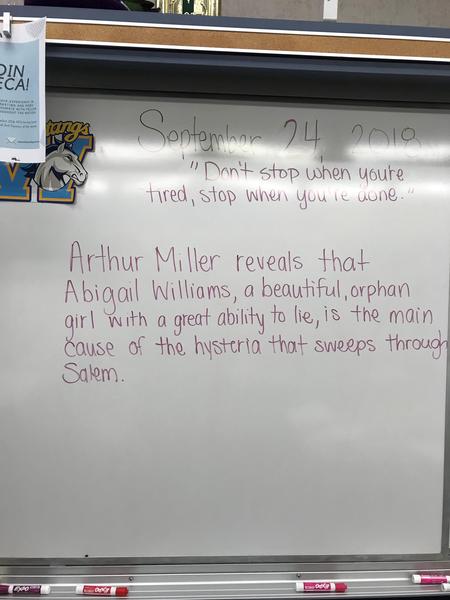 OIN
ECA!
Mustangs
September 24, 2018
"Don't stop when you're
tired, stop when you're done."
Arthur Miller reveals that
Abigail Williams, a beautiful, orphan
girl with a great ability to lie, is the main
cause of the hysteria that sweeps through
Salem.
EXPO
EXPO
EXPO